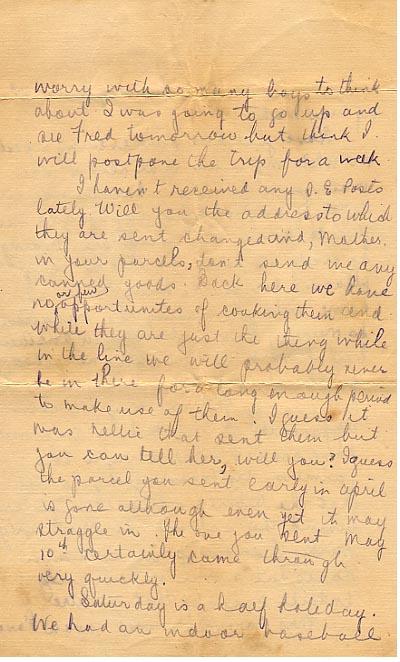 worry with so many boys to think
about I was going to go up and
see Fred tomorrow but think I
will postpone the trip for a week.
I haven't received any D. E. Posts
lately. Will you the address to which
they are sent changed and, Mother,
in your parcels, don't send me any
canned goods. Back here we have
no or few opportunites of cooking them and
while they are just the thing while
in the line we will probably never
be in there for a long enough period
to make use of them. I guess it
was Nellie that sent them but
you can tell her, will you? I guess
the parcel you sent early in April
is gone although even yet it may
straggle in. The one you sent May
10th certainly came through
very quickly.
Saturday is a half holiday.
We had an indoor baseball